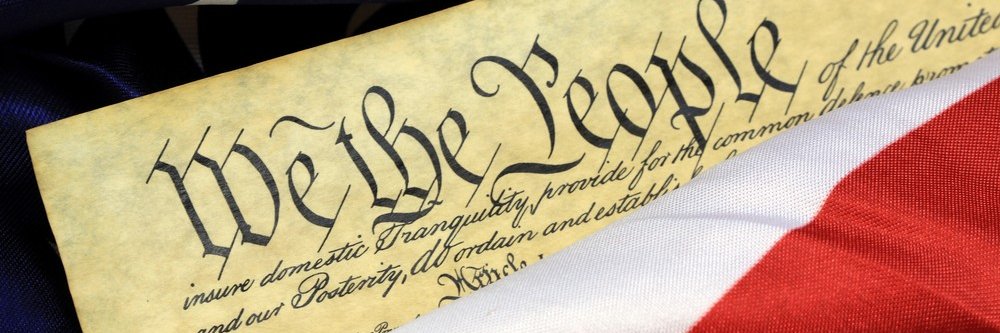 We the People of the United
insure domestic Tranquility, provide for the common defence, promote
and our Posterity, do ordain and establish
Article